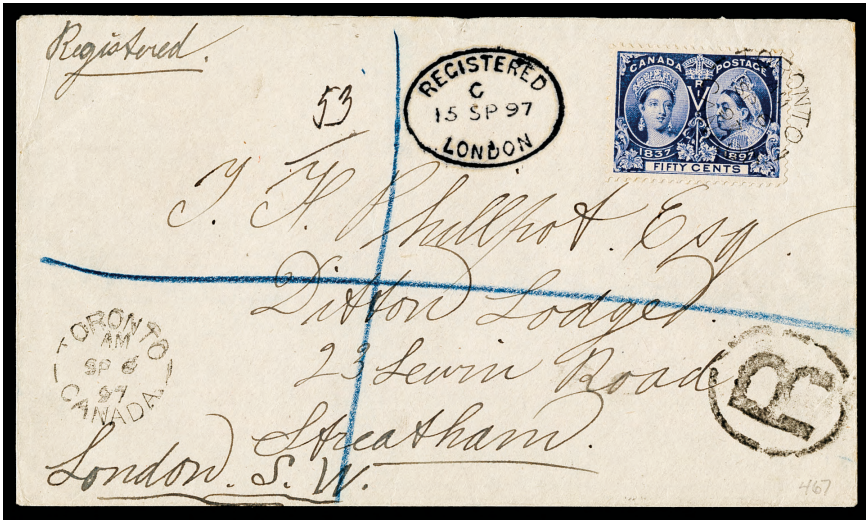 Registered.
53
REGISTERED
C
15 SP 97
LONDON
CANADA POSTAGE
V R
1837 1897
FIFTY CENTS
TORONTO
T. H. Phillpot. Esq.
Ditton Lodge.
23 Lewin Road
Streatham.
London. S. W.
TORONTO
AM
SP 6
97
CANADA.
R
467